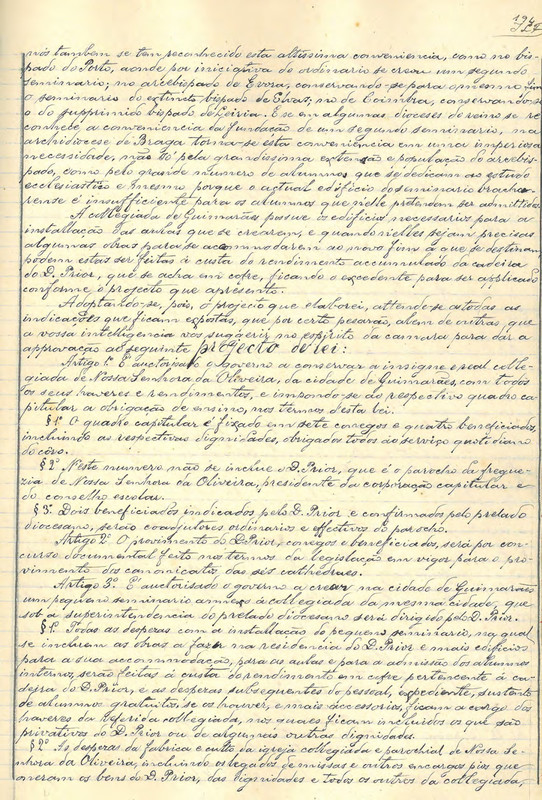 nós tambem se tem reconhecido esta altissima conveniencia, como no bis-
pado do Porto, aonde por iniciativa do ordinario se creou um segundo
seminario; no arcebispado de Evora, conservando-se para o mesmo fim
o seminario do extincto bispado de Elvas; no de Coimbra, conservando-se
o do supprimido bispado de Leiria. E se em algumas dioceses do reino se re-
conhece a conveniencia da fundação de um segundo seminario, na
archidiocese de Braga torna-se esta conveniencia em uma imperiosa
necessidade, não só pela grandissima extensão e população do arcebis-
pado, como pelo grande numero de alumnos que se dedicam ao estudo
ecclesiastico e mesmo porque o actual edificio do seminario bracha-
rense é insufficiente para os alumnos que n'elle pretendem ser admittidos.
A collegiada de Guimarães possue os edificios necessarios para a
installação das aulas que se crearam, e quando n'elles sejam precisas
algumas obras para se accommodarem ao novo fim a que se destinam,
podem estas ser feitas á custa do rendimento accumulado da cadeira
do D. Prior, que se acha em cofre, ficando o excedente para ser applicado
conforme o projecto que apresento.
Adoptando-se, pois, o projecto que elaborei, attende-se a todas as
indicações que ficam expostas, que por certo pesarão, alem de outras, que
a vossa intelligencia vos suggerir, no espirito da camara para dar a
approvação ao seguinte projecto de lei:
Artigo 1.º É auctorisado o governo a conservar a insigne e real colle-
giada de Nossa Senhora da Oliveira, da cidade de Guimarães, com todos
os seus haveres e rendimentos, e impondo-se ao respectivo quadro ca-
pitular a obrigação de ensino, nos termos desta lei.
§ 1.º O quadro capitular é fixado em sete conegos e quatro beneficiados,
incluindo as respectivas dignidades, obrigados todos ao serviço quotidiano
do côro.
§ 2.º Neste numero não se inclue o D. Prior, que é o parocho da fregue-
zia de Nossa Senhora da Oliveira, presidente da corporação capitular e
do conselho escolar.
§ 3.º Dois beneficiados indicados pelo D. Prior e confirmados pelo prelado
diocesano, serão coadjutores ordinarios e effectivos do parocho.
Artigo 2.º O provimento do D. Prior, conegos e beneficiados, será por con-
curso documental feito nos termos da legislação em vigor para o pro-
vimento dos canonicatos das sés cathedraes.
Artigo 3.º É auctorisado o governo a crear na cidade de Guimarães
um pequeno seminario annexo á collegiada da mesma cidade, que
sob a superintendencia do prelado diocesano será dirigido pelo D. Prior.
§ 1.º Todas as despezas com a installação do pequeno seminario, na qual
se incluem as obras a fazer na residencia do D. Prior e mais edificios
para a sua accommodação, para as aulas e para a admissão dos alumnos
internos, serão feitas á custa do rendimento em cofre pertencente á ca-
deira do D. Prior, e as despezas subsequentes do pessoal, expediente, sustento
de alumnos gratuitos, se os houver, e mais accessorios, ficam a cargo dos
haveres da referida collegiada, nos quaes ficam incluidos os que são
privativos do D. Prior ou de algumas outras dignidades.
§ 2.º As despezas da fabrica e culto da igreja collegiada e parochial de Nossa Se-
nhora da Oliveira, incluindo os legados de missas e outros encargos pios que
oneram os bens do D. Prior, das dignidades e todos os outros da collegiada,